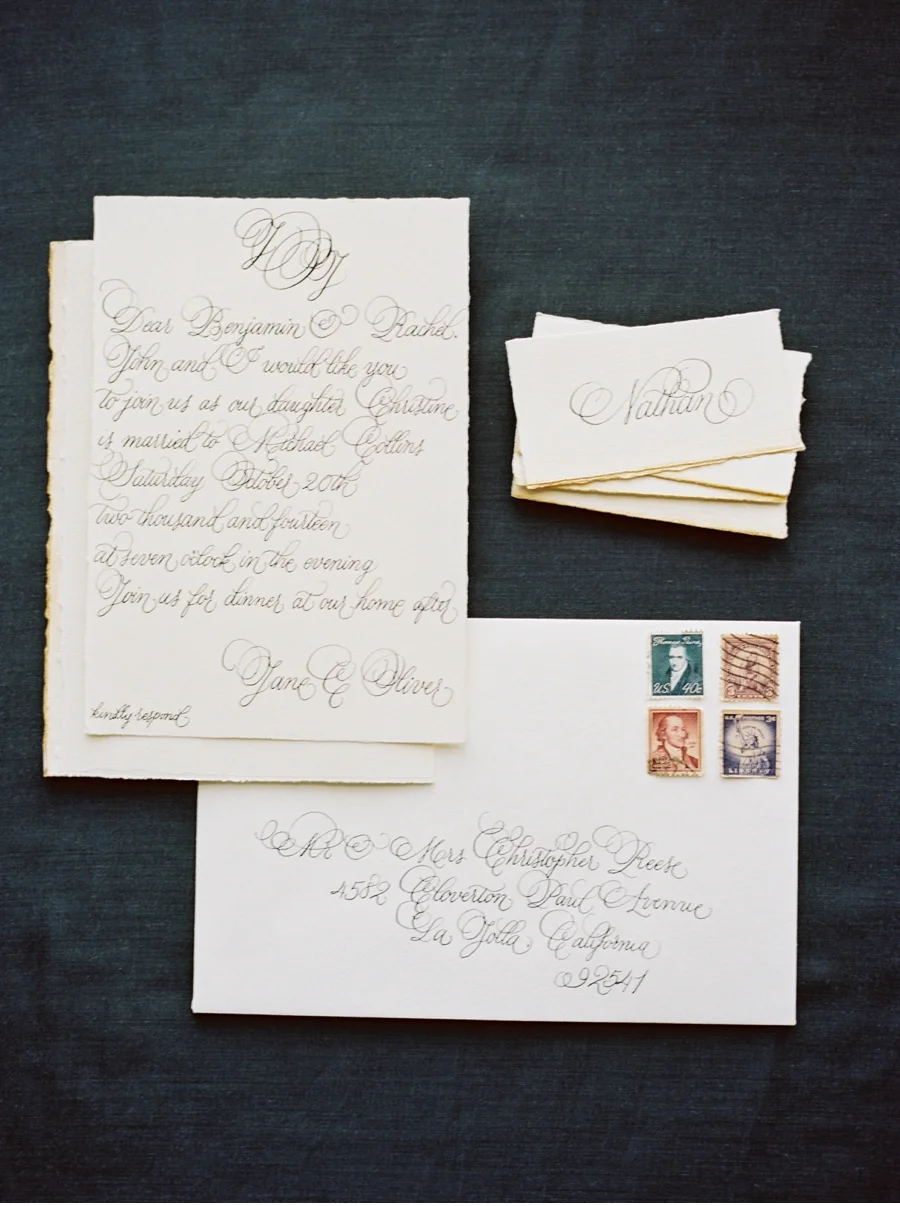 Dear Benjamin & Rachel.
John and I would like you
to join us as our daughter Christine
is married to Michael Collins
Saturday October 20th
two thousand and fourteen
at seven o'clock in the evening
Join us for dinner at our home after
Jane E Oliver
kindly respond
Nathan
Thomas Paine
U.S. 40c
3c
LIBERTY
Mr & Mrs Christopher Reese
4582 Cloverton Paul Avenue
La Jolla, California
92541